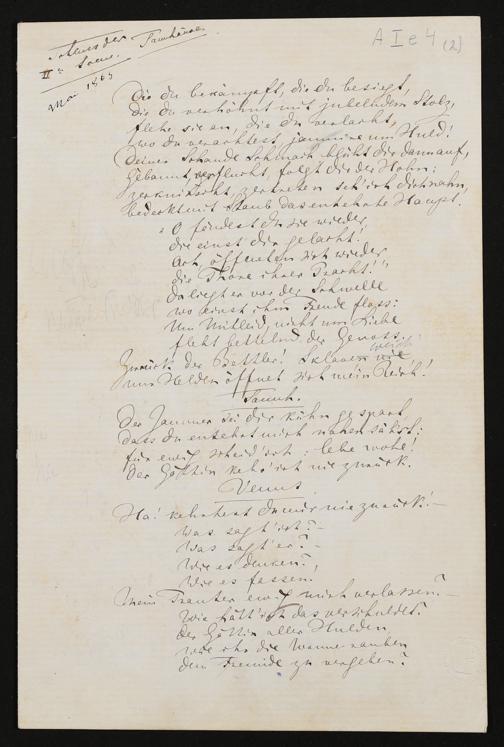 Schluss der
IIn Scene. Tannhäuser
Mai 1865
A I e 4 (2)
Die du bekämpft, die du besiegt,
die du verhöhnt mit jubelndem Stolz,
flehe sie an, die du verlacht,
wo du verachtest, jammre um Huld!
Deine Schande Schmach blüht dir dann auf,
gebannt, verflucht, folgt dir der Hohn:
zerknirscht, zertreten seh' ich dich nahn,
bedeckt mit Staub das entehrte Haupt.
"O fändest du sie wieder,
die einst dir gelacht!
Ach, öffneten sich wieder
die Thore ihrer Pracht!"
Da liegt er vor der Schwelle
wo einst ihm Freude floss:
Um Mitleid, nicht um Liebe
fleht bettelnd der Genoss.
Zurück der Bettler! Sklaven nie
weicht
nur Helden öffnet sich mein Reich!
Tannh.
Der Jammer sei dir kühn gespart
dass du entehrt mich nahen sähst:
für ewig scheid' ich: lebe wohl!
Der Göttin kehr' ich nie zurück.
Venus
Ha! kehrtest du mir nie zurück! –
Was sagt' ich? –
Was sagt' er? –
Wie es denken?,
Wie es fassen
Mein Trauter ewig mich verlassen? –
Wie hätt' ich das verschuldet?
der Göttin aller Hulden
wie ihr die Wonne rauben
dem Freunde zu vergeben?